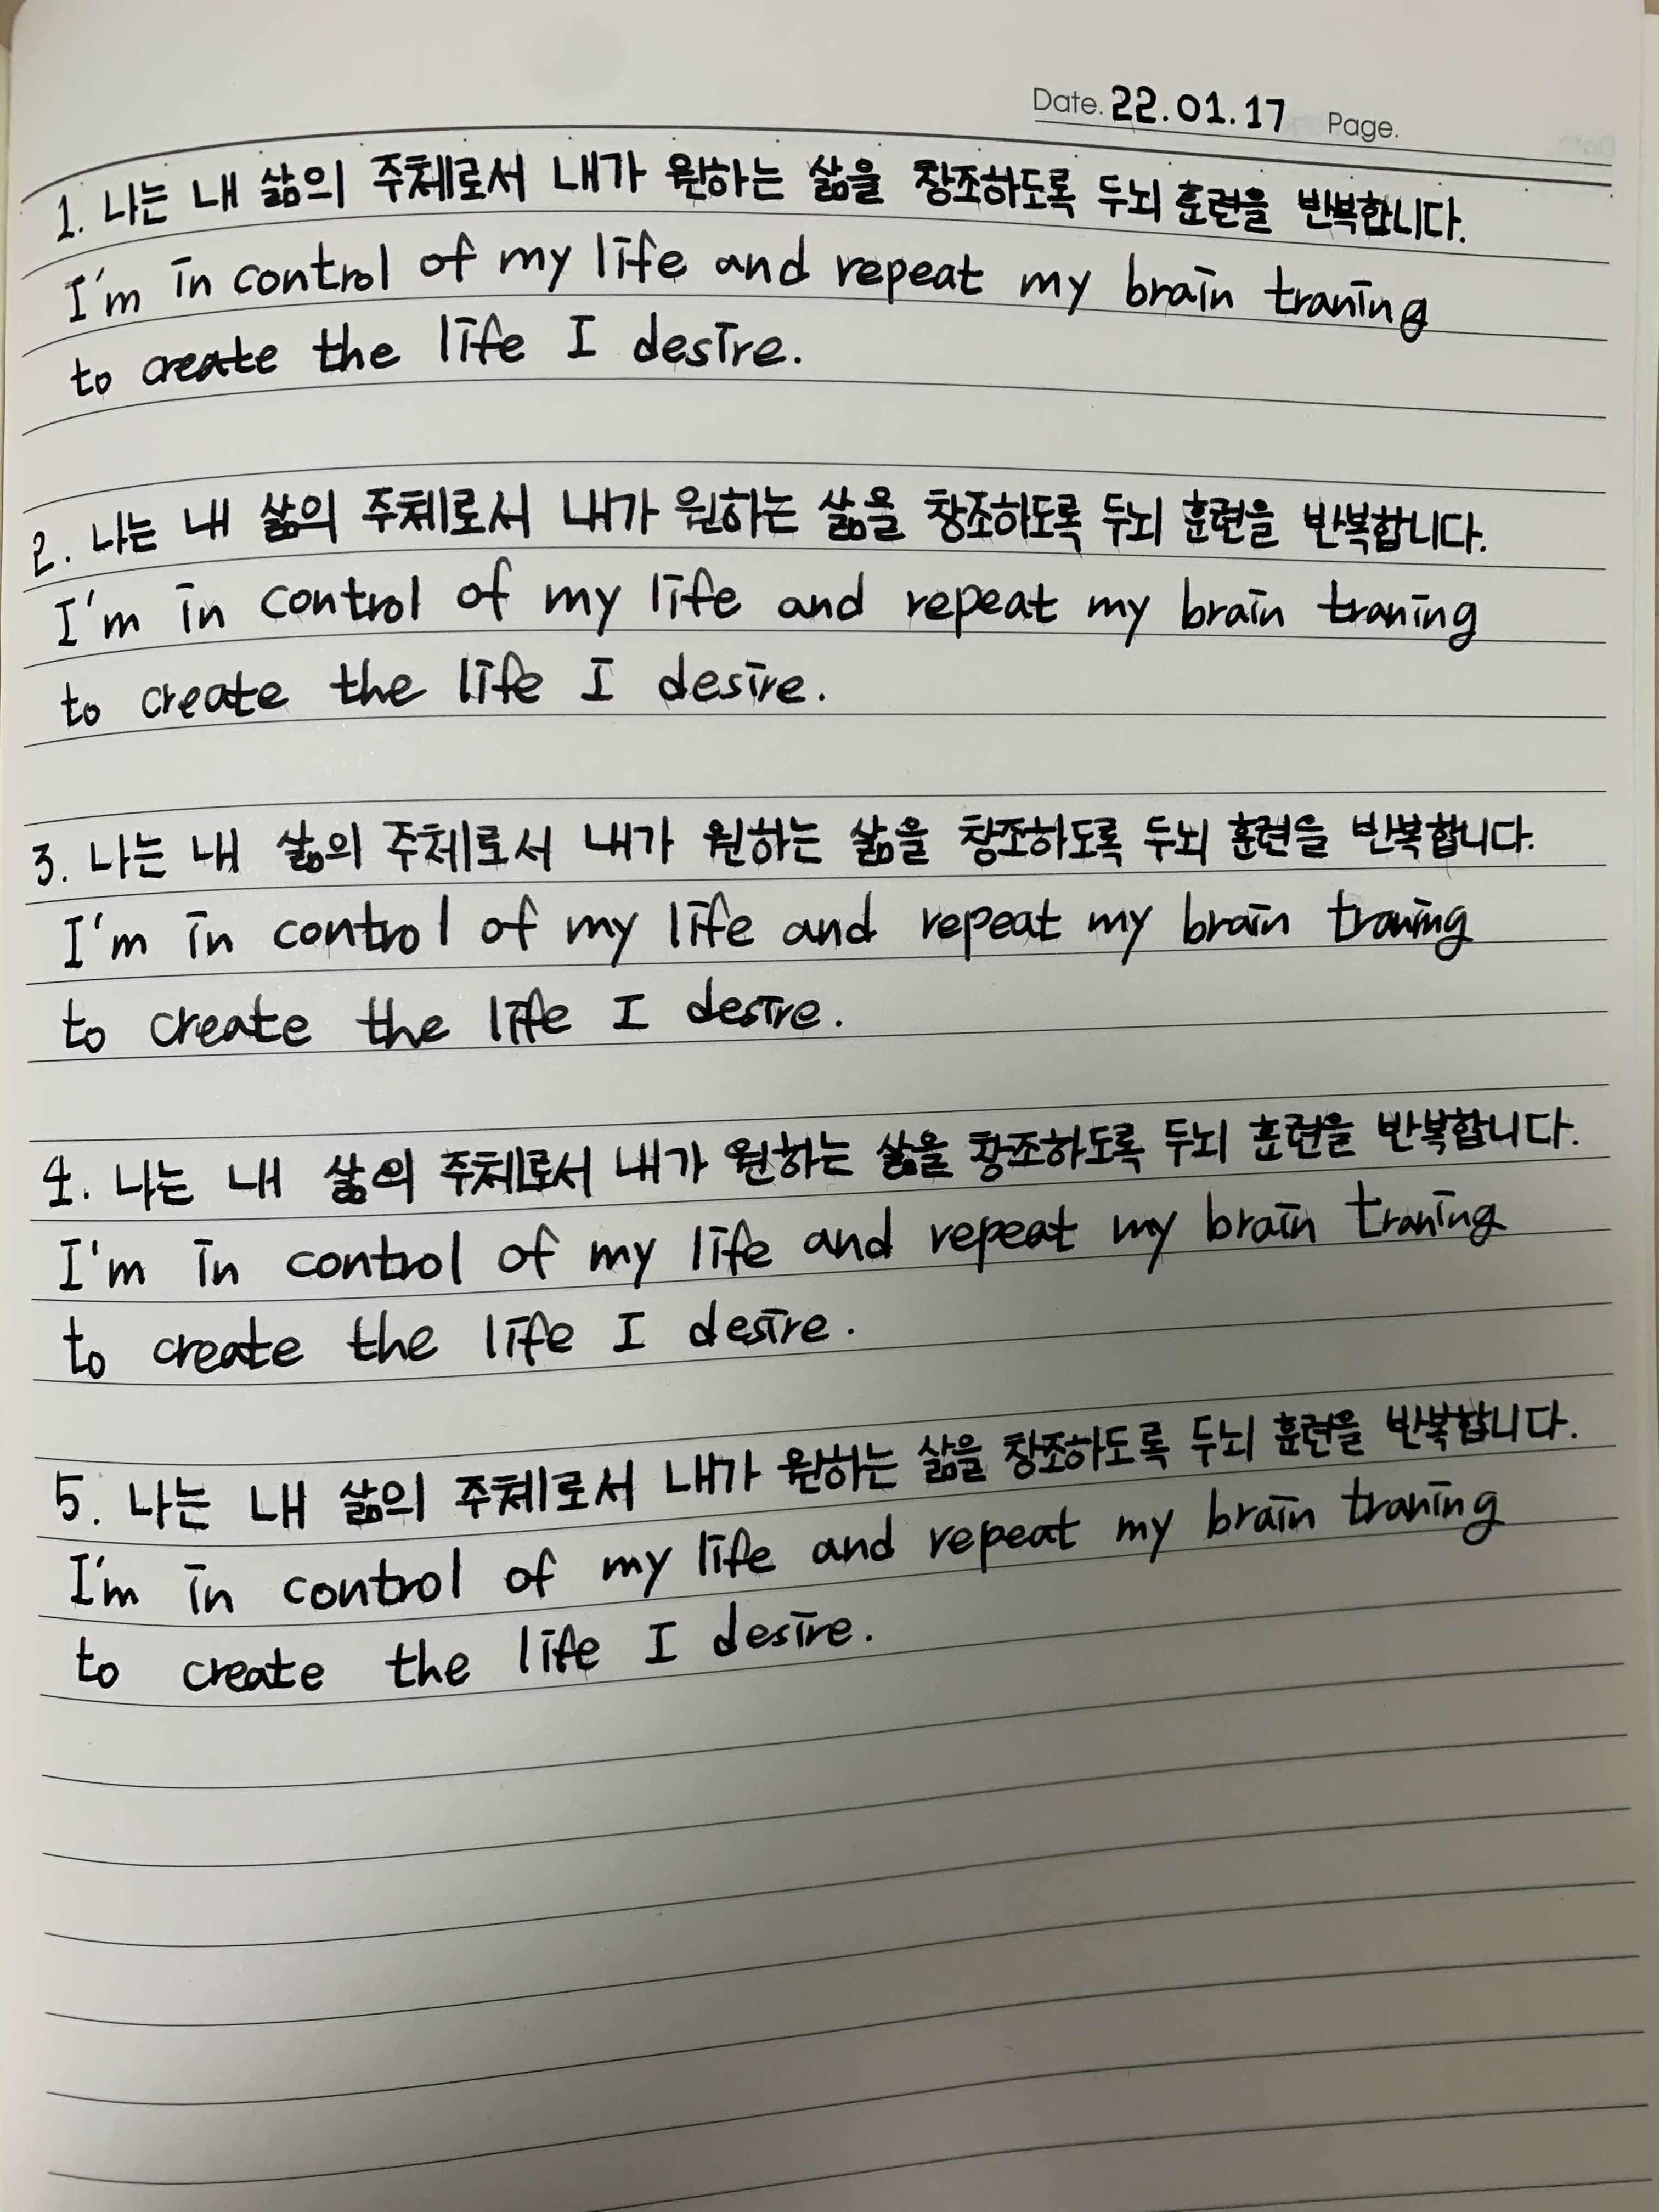 Date. 22.01.17 Page.
1. 나는 내 삶의 주체로서 내가 원하는 삶을 창조하도록 두뇌 훈련을 반복합니다.
I'm in control of my life and repeat my brain traning
to create the life I desire.
2. 나는 내 삶의 주체로서 내가 원하는 삶을 창조하도록 두뇌 훈련을 반복합니다.
I'm in control of my life and repeat my brain traning
to create the life I desire.
3. 나는 내 삶의 주체로서 내가 원하는 삶을 창조하도록 두뇌 훈련을 반복합니다.
I'm in control of my life and repeat my brain traning
to create the life I desire.
4. 나는 내 삶의 주체로서 내가 원하는 삶을 창조하도록 두뇌 훈련을 반복합니다.
I'm in control of my life and repeat my brain traning
to create the life I desire.
5. 나는 내 삶의 주체로서 내가 원하는 삶을 창조하도록 두뇌 훈련을 반복합니다.
I'm in control of my life and repeat my brain traning
to create the life I desire.